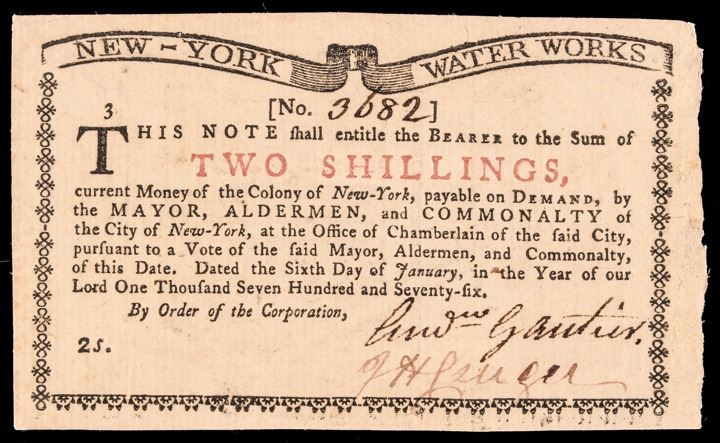 NEW-YORK WATER WORKS
[No. 3682]
3
THIS NOTE ſhall entitle the BEARER to the Sum of
TWO SHILLINGS,
current Money of the Colony of New-York, payable on DEMAND, by
the MAYOR, ALDERMEN, and COMMONALTY of
the City of New-York, at the Office of Chamberlain of the ſaid City,
purſuant to a Vote of the ſaid Mayor, Aldermen, and Commonalty,
of this Date. Dated the Sixth Day of January, in the Year of our
Lord One Thouſand Seven Hundred and Seventy-ſix.
By Order of the Corporation,
Andw Gautier.
2s.
J H Cruger